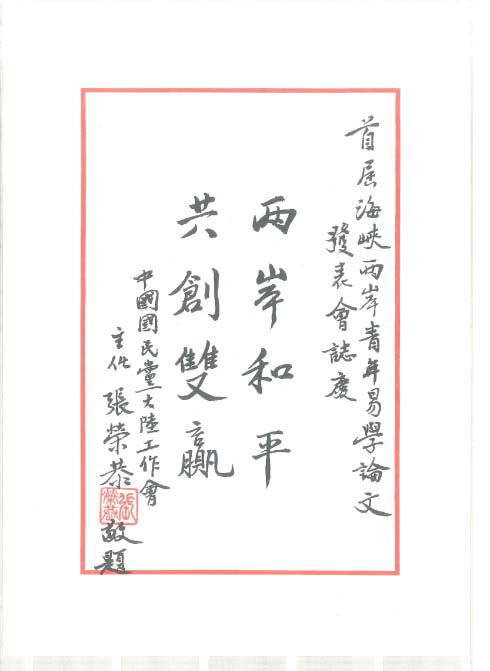 首屆海峽兩岸青年易學論文
發表會誌慶
兩岸和平
共創雙贏
中國國民黨大陸工作會
主任 張榮恭 敬題
張榮恭